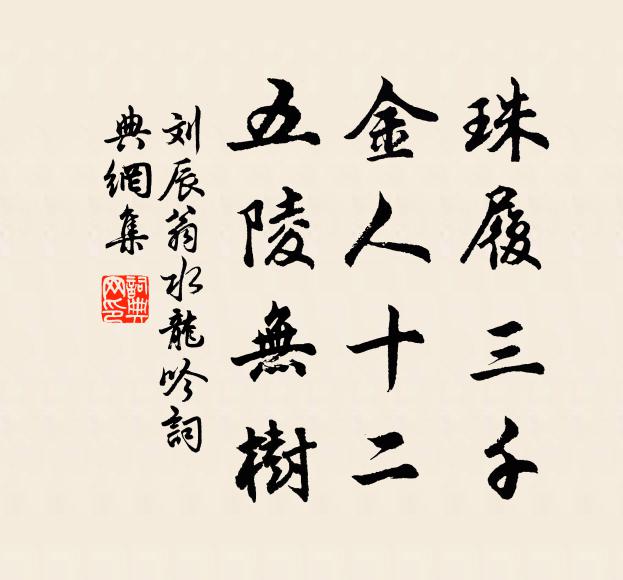 珠履三千
金人十二
五陵無樹
刘辰翁水龍吟詞
典網集
詞典
网印